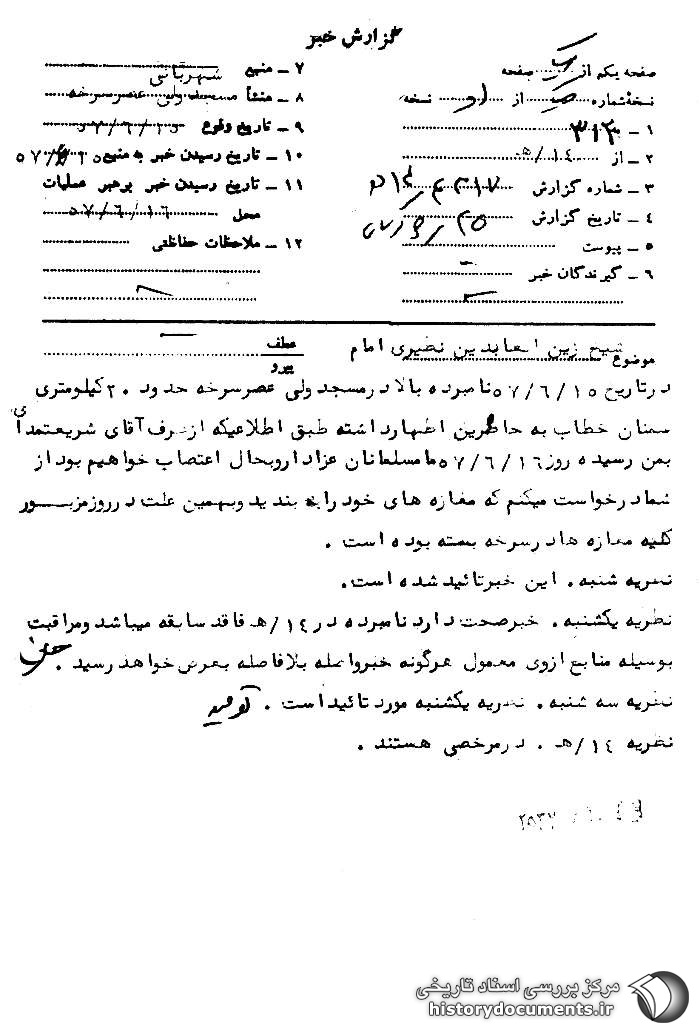 گزارش خبر
صفحه یکم از یک صفحه
نسخه شماره از نسخه
۱ - به ۳۱۲
۲ - از ۱۴/هـ
۳ - شماره گزارش
۴ - تاریخ گزارش
۵ - پیوست
۶ - گیرندگان خبر
۷ - منبع شهربانی
۸ - منشأ مسجد ولی عصر سرخه
۹ - تاریخ وقوع ۵۷/۶/۱۵
۱۰ - تاریخ رسیدن خبر به منبع ۵۷/۶/۱۵
۱۱ - تاریخ رسیدن خبر برهبر عملیات
محل ۵۷/۶/۱۶
۱۲ - ملاحظات حفاظتی
موضوع شیخ زین العابدین نظیری امام
عطف
پیرو
در تاریخ ۵۷/۶/۱۵ نامبرده بالا در مسجد ولی عصر سرخه حدود ۲۰ کیلومتری
سمنان خطاب به حاظرین اظهار داشته طبق اطلاعیکه از طرف آقای شریعتمداری
بمن رسیده روز ۵۷/۶/۱۶ ما مسلمانان عزادار و بحال اعتصاب خواهیم بود از
شما درخواست میکنم که مغازه های خود را به بندید و بهمین علت در روز مزبور
کلیه مغازه ها در سرخه بسته بوده است .
نظریه شنبه . این خبر تائید شده است .
نظریه یکشنبه . خبر صحت دارد نامبرده در ۱۴/هـ فاقد سابقه میباشد و مراقبت
بوسیله منابع از وی معمول هرگونه خبر واصله بلافاصله بعرض خواهد رسید .
نظریه سه شنبه . نظریه یکشنبه مورد تائید است .
نظریه ۱۴/هـ . در مرخصی هستند .
۲۵۳۷
مرکز بررسی اسناد تاریخی
historydocuments.ir